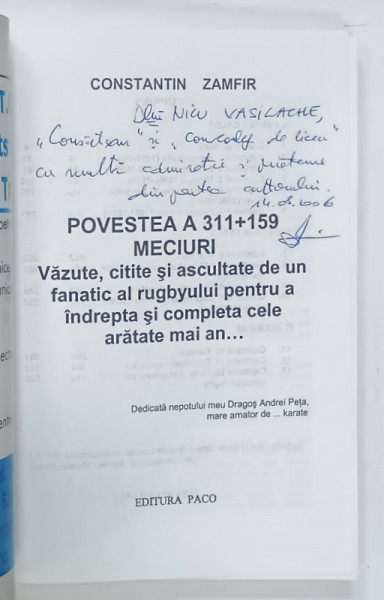 CONSTANTIN ZAMFIR
Dlui NICU VASILACHE,
"Consătean" și "coleg de liceu"
cu multă admirație și prietenie
din partea autorului.
14.05.2006
POVESTEA A 311+159
MECIURI
Văzute, citite şi ascultate de un
fanatic al rugbyului pentru a
îndrepta şi completa cele
arătate mai an...
Dedicată nepotului meu Dragoş Andrei Peţa,
mare amator de ... karate
EDITURA PACO